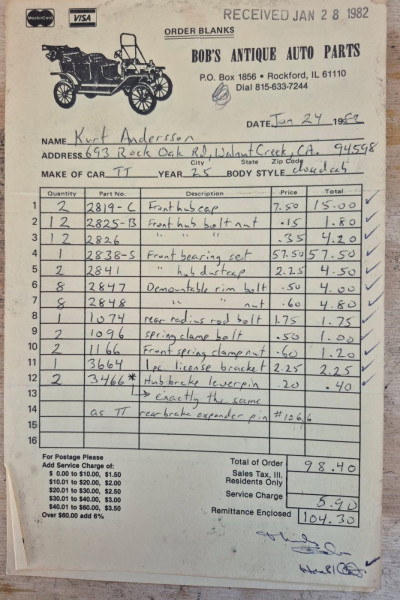 MasterCard VISA RECEIVED JAN 28 1982
ORDER BLANKS
BOB'S ANTIQUE AUTO PARTS
P.O. Box 1856 • Rockford, IL 61110
Dial 815-633-7244
DATE Jan 24 1982
NAME Kurt Andersson
ADDRESS 693 Rock Oak Rd, Walnut Creek, CA. 94598
City State Zip Code
MAKE OF CAR TT YEAR 25 BODY STYLE closed cab
Quantity Part No. Description Price Total
1 2 2819-C Front hub cap 7.50 15.00
2 12 2825-B Front hub bolt nut .15 1.80
3 12 2826 " " " .35 4.20
4 1 2838-S Front bearing set 57.50 57.50
5 2 2841 " hub dustcap 2.25 4.50
6 8 2847 Demountable rim bolt .50 4.00
7 8 2848 " " nut .60 4.80
8 1 1074 rear radius rod bolt 1.75 1.75
9 2 1096 spring clamp bolt .50 1.00
10 2 1166 Front spring clamp nut .60 1.20
11 1 3664 1pc license bracket 2.25 2.25
12 2 3466* Hub brake lever pin .20 .40
13 → exactly the same
14 as TT rear brake expander pin #1066
15
16
For Postage Please
Add Service Charge of:
$ 0.00 to $10.00, $1.50
$10.01 to $20.00, $2.00
$20.01 to $30.00, $2.50
$30.01 to $40.00, $3.00
$40.01 to $60.00, $3.50
Over $60.00 add 6%
Total of Order 98.40
Sales Tax, Ill.
Residents Only
Service Charge 5.90
Remittance Enclosed 104.30